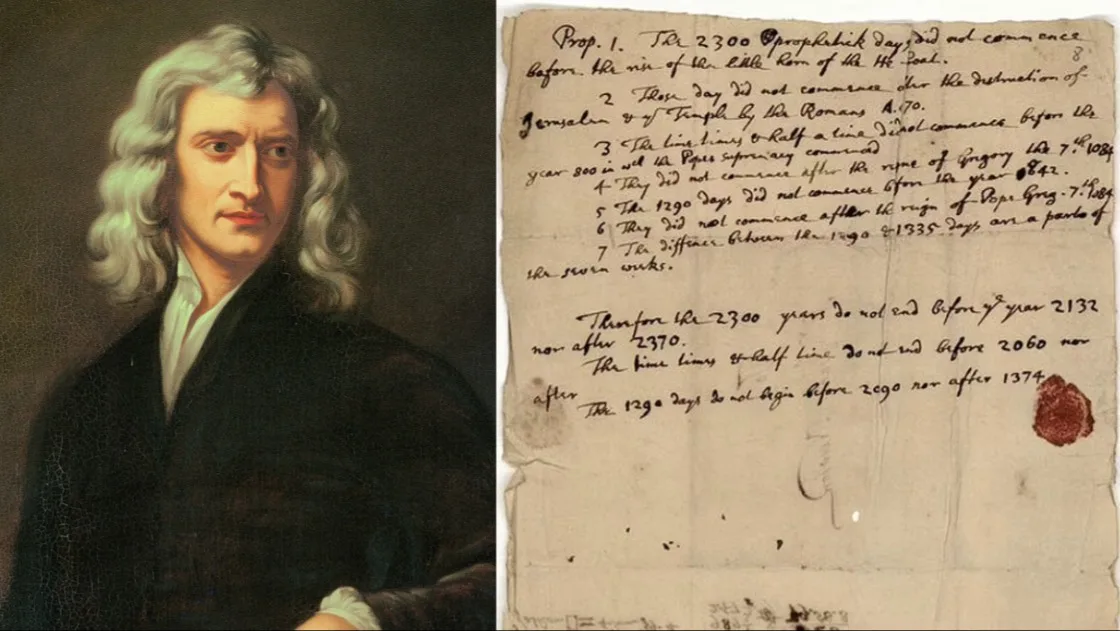 Prop. 1. The 2300 prophetick days did not commence
before the rise of the little horn of the He Goat.
2 Those day did not commence after the destruction of
Jerusalem & ye Temple by the Romans A. 70.
3 The time times & half a time did not commence before the
year 800 in wch the Popes supremacy commenced
4 They did not commence after the reigne of Gregory the 7.th 1084
5 The 1290 days did not commence before the year 842.
6 They did not commence after the reign of Pope Greg. 7.th 1084
7 The diffence between the 1290 & 1335 days are a parts of
the seven weeks.
Therefore the 2300 years do not end before ye year 2132
nor after 2370.
The time times & half time do not end before 2060 nor
after
The 1290 days do not begin before 2090 nor after 1374
8